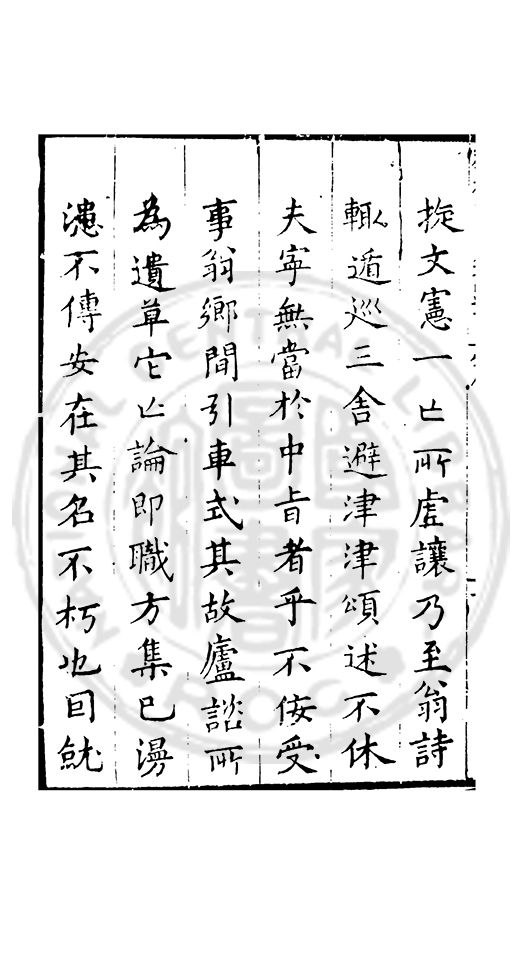 文憲一亡所虛讓乃至翁詩
輒遁巡三舍避津津頌述不休
夫寧無當扵中㫖者乎不佞受
事翁鄉間引車式其故廬諮所
為遺草它亡論即職方集已漫
漶不傳安在其名不朽也囙就